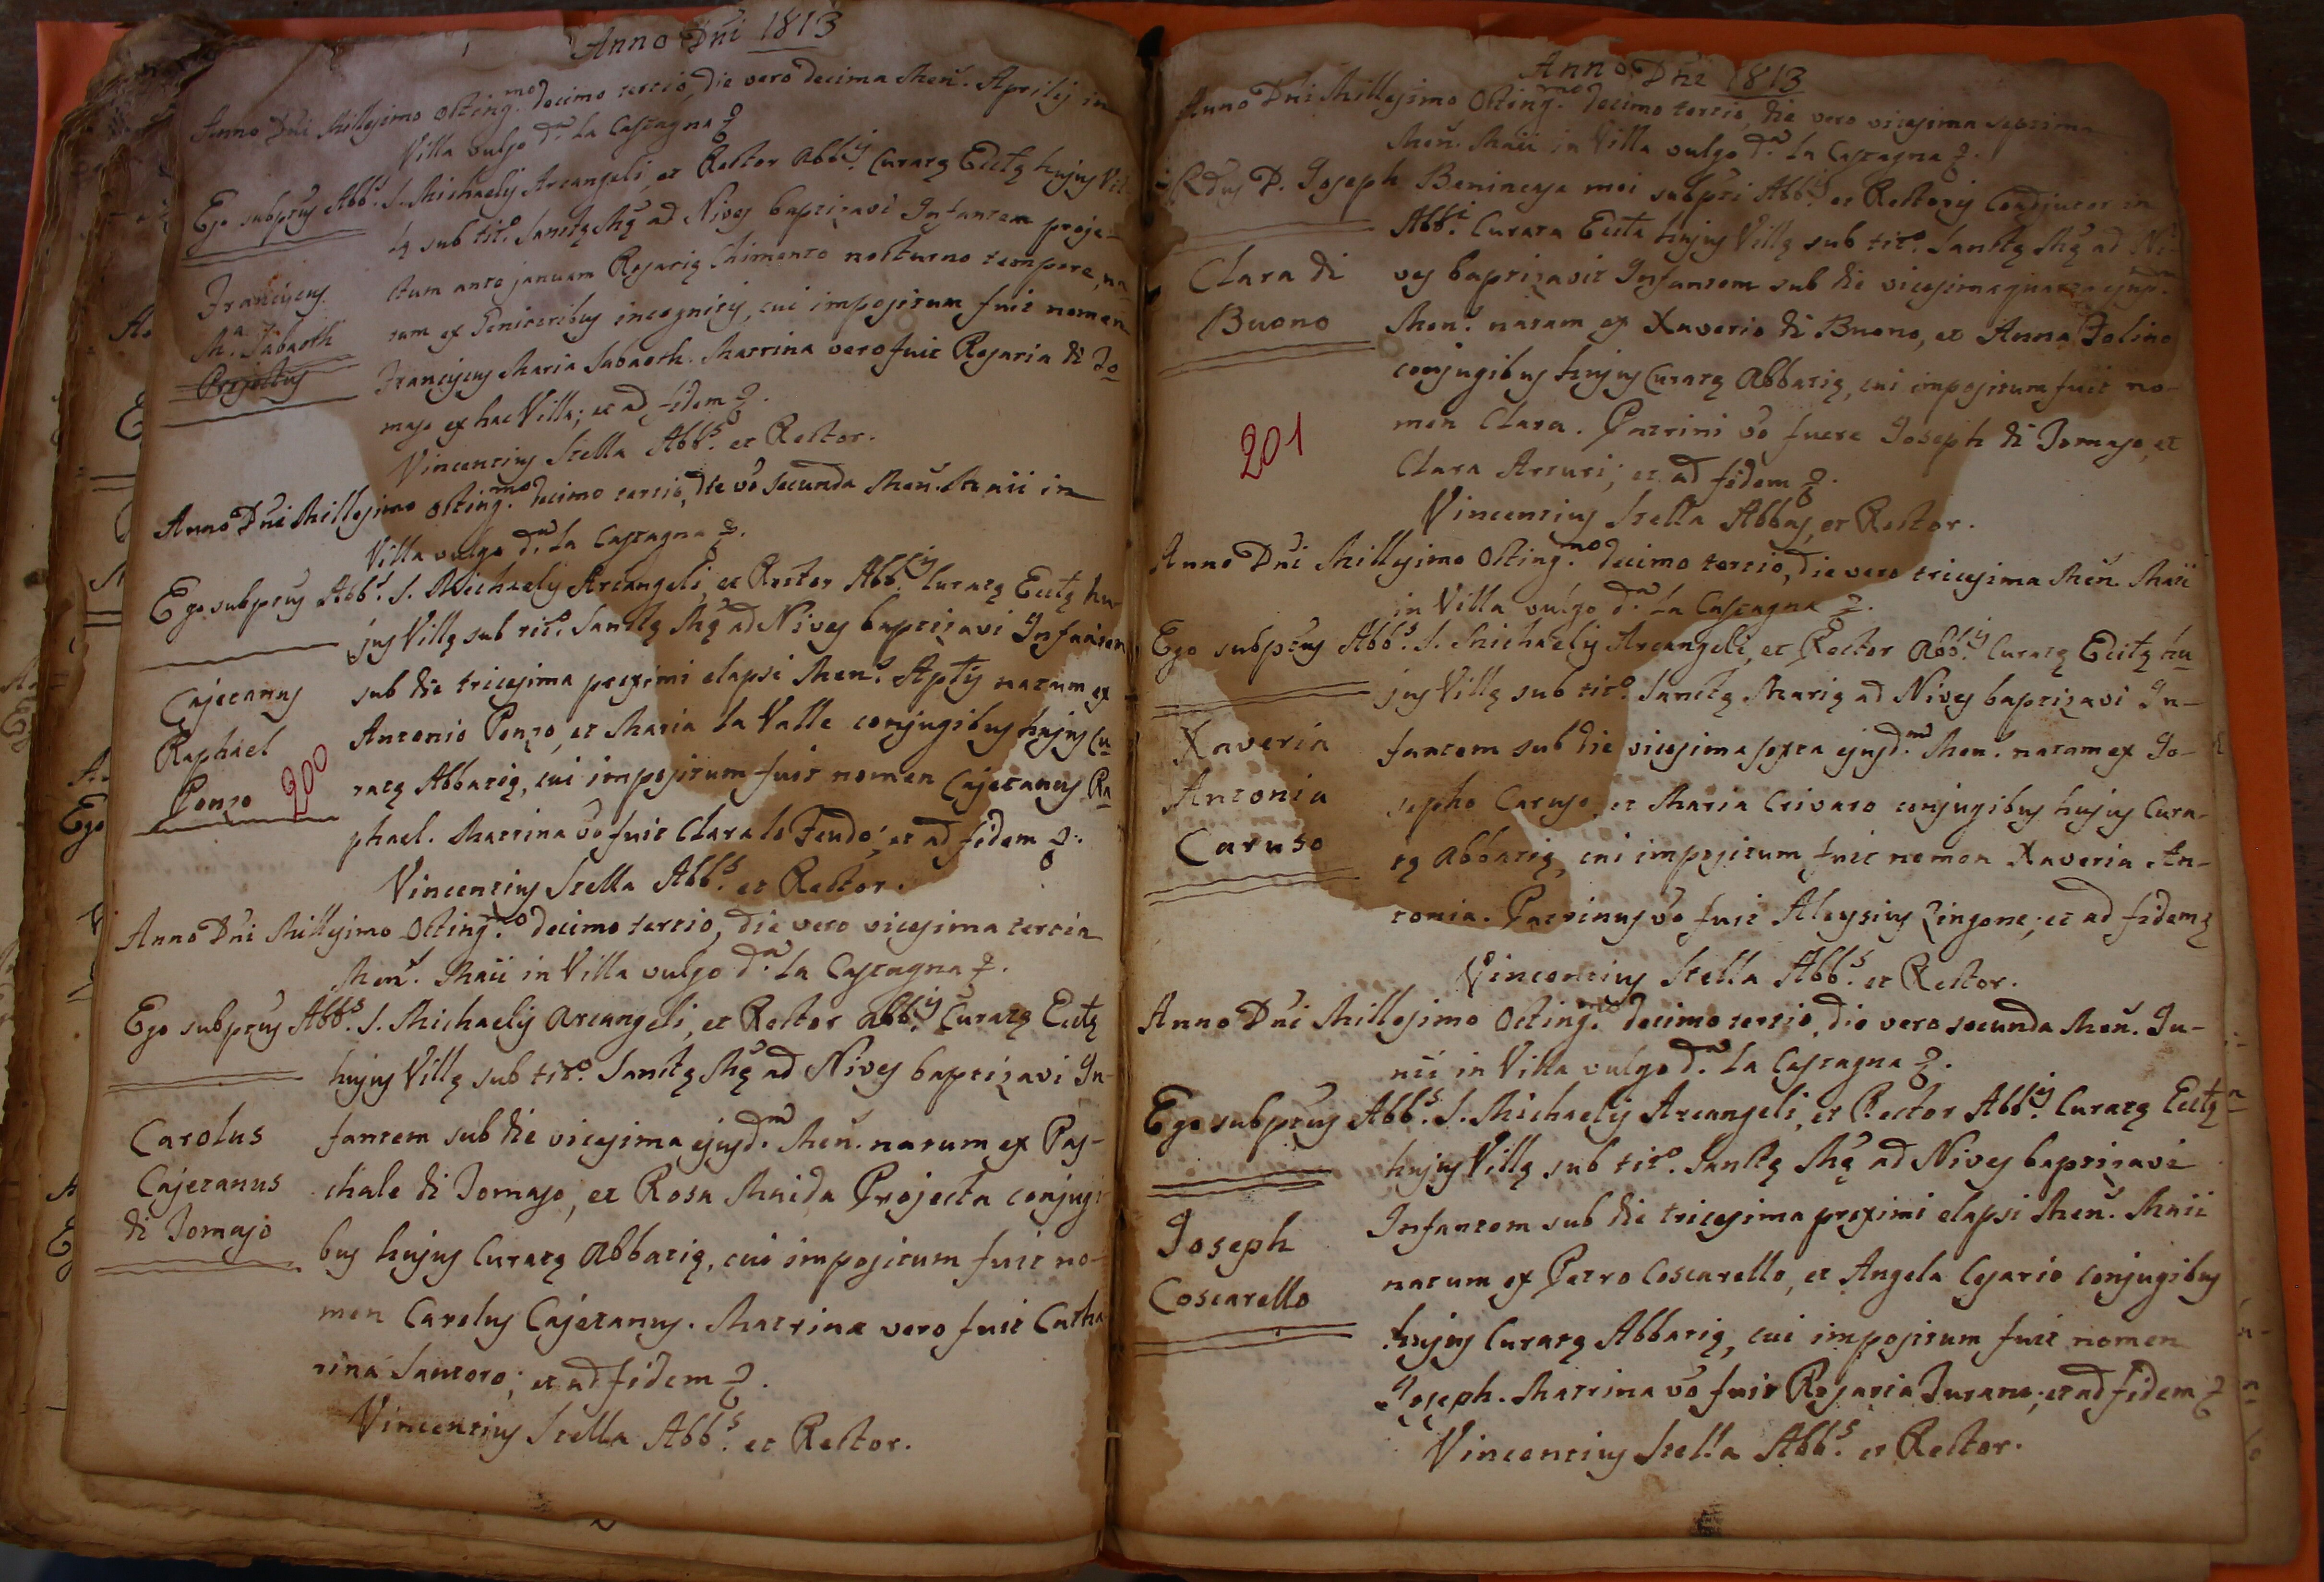 Anno Dñi 1813
Anno Dñi Millesimo Octing.mo decimo tertio, die vero decima Meñ. Aprilis in
Villa vulgo d.a La Castagna &.
Ego subptus Abb.s S. Michaelis Arcangeli, et Rector Abb.is Curatę Ecctę hujus Vil-
lę sub tit.o Sanctę Mę ad Nives baptizavi Infantem proje-
ctum ante januam Rosarię Chimento nocturno tempore, na-
tum ex Genitoribus incognitis, cui impositum fuit nomen
Franciscus Maria Sabaoth. Matrina vero fuit Rosaria di To-
maso ex hac Villa; et ad fidem &.
Vincentius Stella Abb.s et Rector.
Franciscus
M.a Sabaoth
Projectus
Anno Dñi Millesimo Octing.mo decimo tertio, die võ secunda Meñ. Maii in
Villa vulgo d.a La Castagna &.
Ego subptus Abb.s S. Michaelis Arcangeli, et Rector Abb.is Curatę Ecctę hu-
jus Villę sub tit.o Sanctę Mę ad Nives baptizavi Infantem
sub die tricesima proximi elapsi Men.s Aplis natum ex
Antonio Ponzo, et Maria La Valle conjugibus hujus Cu-
ratę Abbatię, cui impositum fuit nomen Cajetanus Ra-
phael. Matrina võ fuit Clara lo Feudo; et ad fidem &.
Vincentius Stella Abb.s et Rector.
Cajetanus
Raphael
Ponzo
200
Anno Dñi Millesimo Octing.mo decimo tertio, die vero vicesima tertia
Meñ. Maii in Villa vulgo d.a La Castagna &.
Ego subptus Abb.s S. Michaelis Arcangeli, et Rector Abb.is Curatę Ecctę
hujus Villę sub tit.o Sanctę Mę ad Nives baptizavi In-
fantem sub die vicesima ejusd.m Meñ. natum ex Pas-
chale di Tomaso, et Rosa Maida Projecta conjugi-
bus hujus Curatę Abbatię, cui impositum fuit no-
men Carolus Cajetanus. Matrina vero fuit Catha-
rina Santoro; et ad fidem &.
Vincentius Stella Abb.s et Rector.
Carolus
Cajetanus
di Tomaso
Anno Dñi 1813
Anno Dñi Millesimo Octing.mo decimo tertio, die vero vicesima septima
Meñ. Maii in Villa vulgo d.a La Castagna &.
Rdus D. Joseph Benincasa mei subpti Abb.is et Rectoris Coadjutor in
Abb.i Curata Eccta hujus Villę sub tit.o Sanctę Mę ad Ni-
ves baptizavit Infantem sub die vicesimaquarta ejusd.m
Men.s natam ex Xaverio di Buono, et Anna Folino
conjugibus hujus Curatę Abbatię, cui impositum fuit no-
men Clara. Patrini võ fuere Joseph di Tomaso, et
Clara Arcuri; et ad fidem &.
Vincentius Stella Abbas, et Rector.
Clara di
Buono
201
Anno Dñi Millesimo Octing.mo decimo tertio, die vero tricesima Meñ. Maii
in Villa vulgo d.a La Castagna &.
Ego subptus Abb.s S. Michaelis Arcangeli, et Rector Abb.is Curatę Ecctę hu-
jus Villę sub tit.o Sanctę Marię ad Nives baptizavi In-
fantem sub die vicesima sexta ejusd.m Men.s natam ex Jo-
sepho Caruso, et Maria Crivaro conjugibus hujus Cura-
tę Abbatię, cui impositum fuit nomen Xaveria An-
tonia. Patrinus võ fuit Aloysius Zingone; et ad fidem &
Vincentius Stella Abb.s et Rector.
Xaveria
Antonia
Caruso
Anno Dñi Millesimo Octing.mo decimo tertio, die vero secunda Meñ. Ju-
nii in Villa vulgo d.a La Castagna &.
Ego subptus Abb.s S. Michaelis Arcangeli, et Rector Abb.is Curatę Ecctę
hujus Villę sub tit.o Sanctę Mę ad Nives baptizavi
Infantem sub die tricesima proximi elapsi Meñ. Maii
natum ex Petro Coscarello, et Angela Cesario conjugibus
hujus Curatę Abbatię, cui impositum fuit nomen
Joseph. Matrina võ fuit Rosaria Turano; et ad fidem &
Vincentius Stella Abb.s et Rector.
Joseph
Coscarello